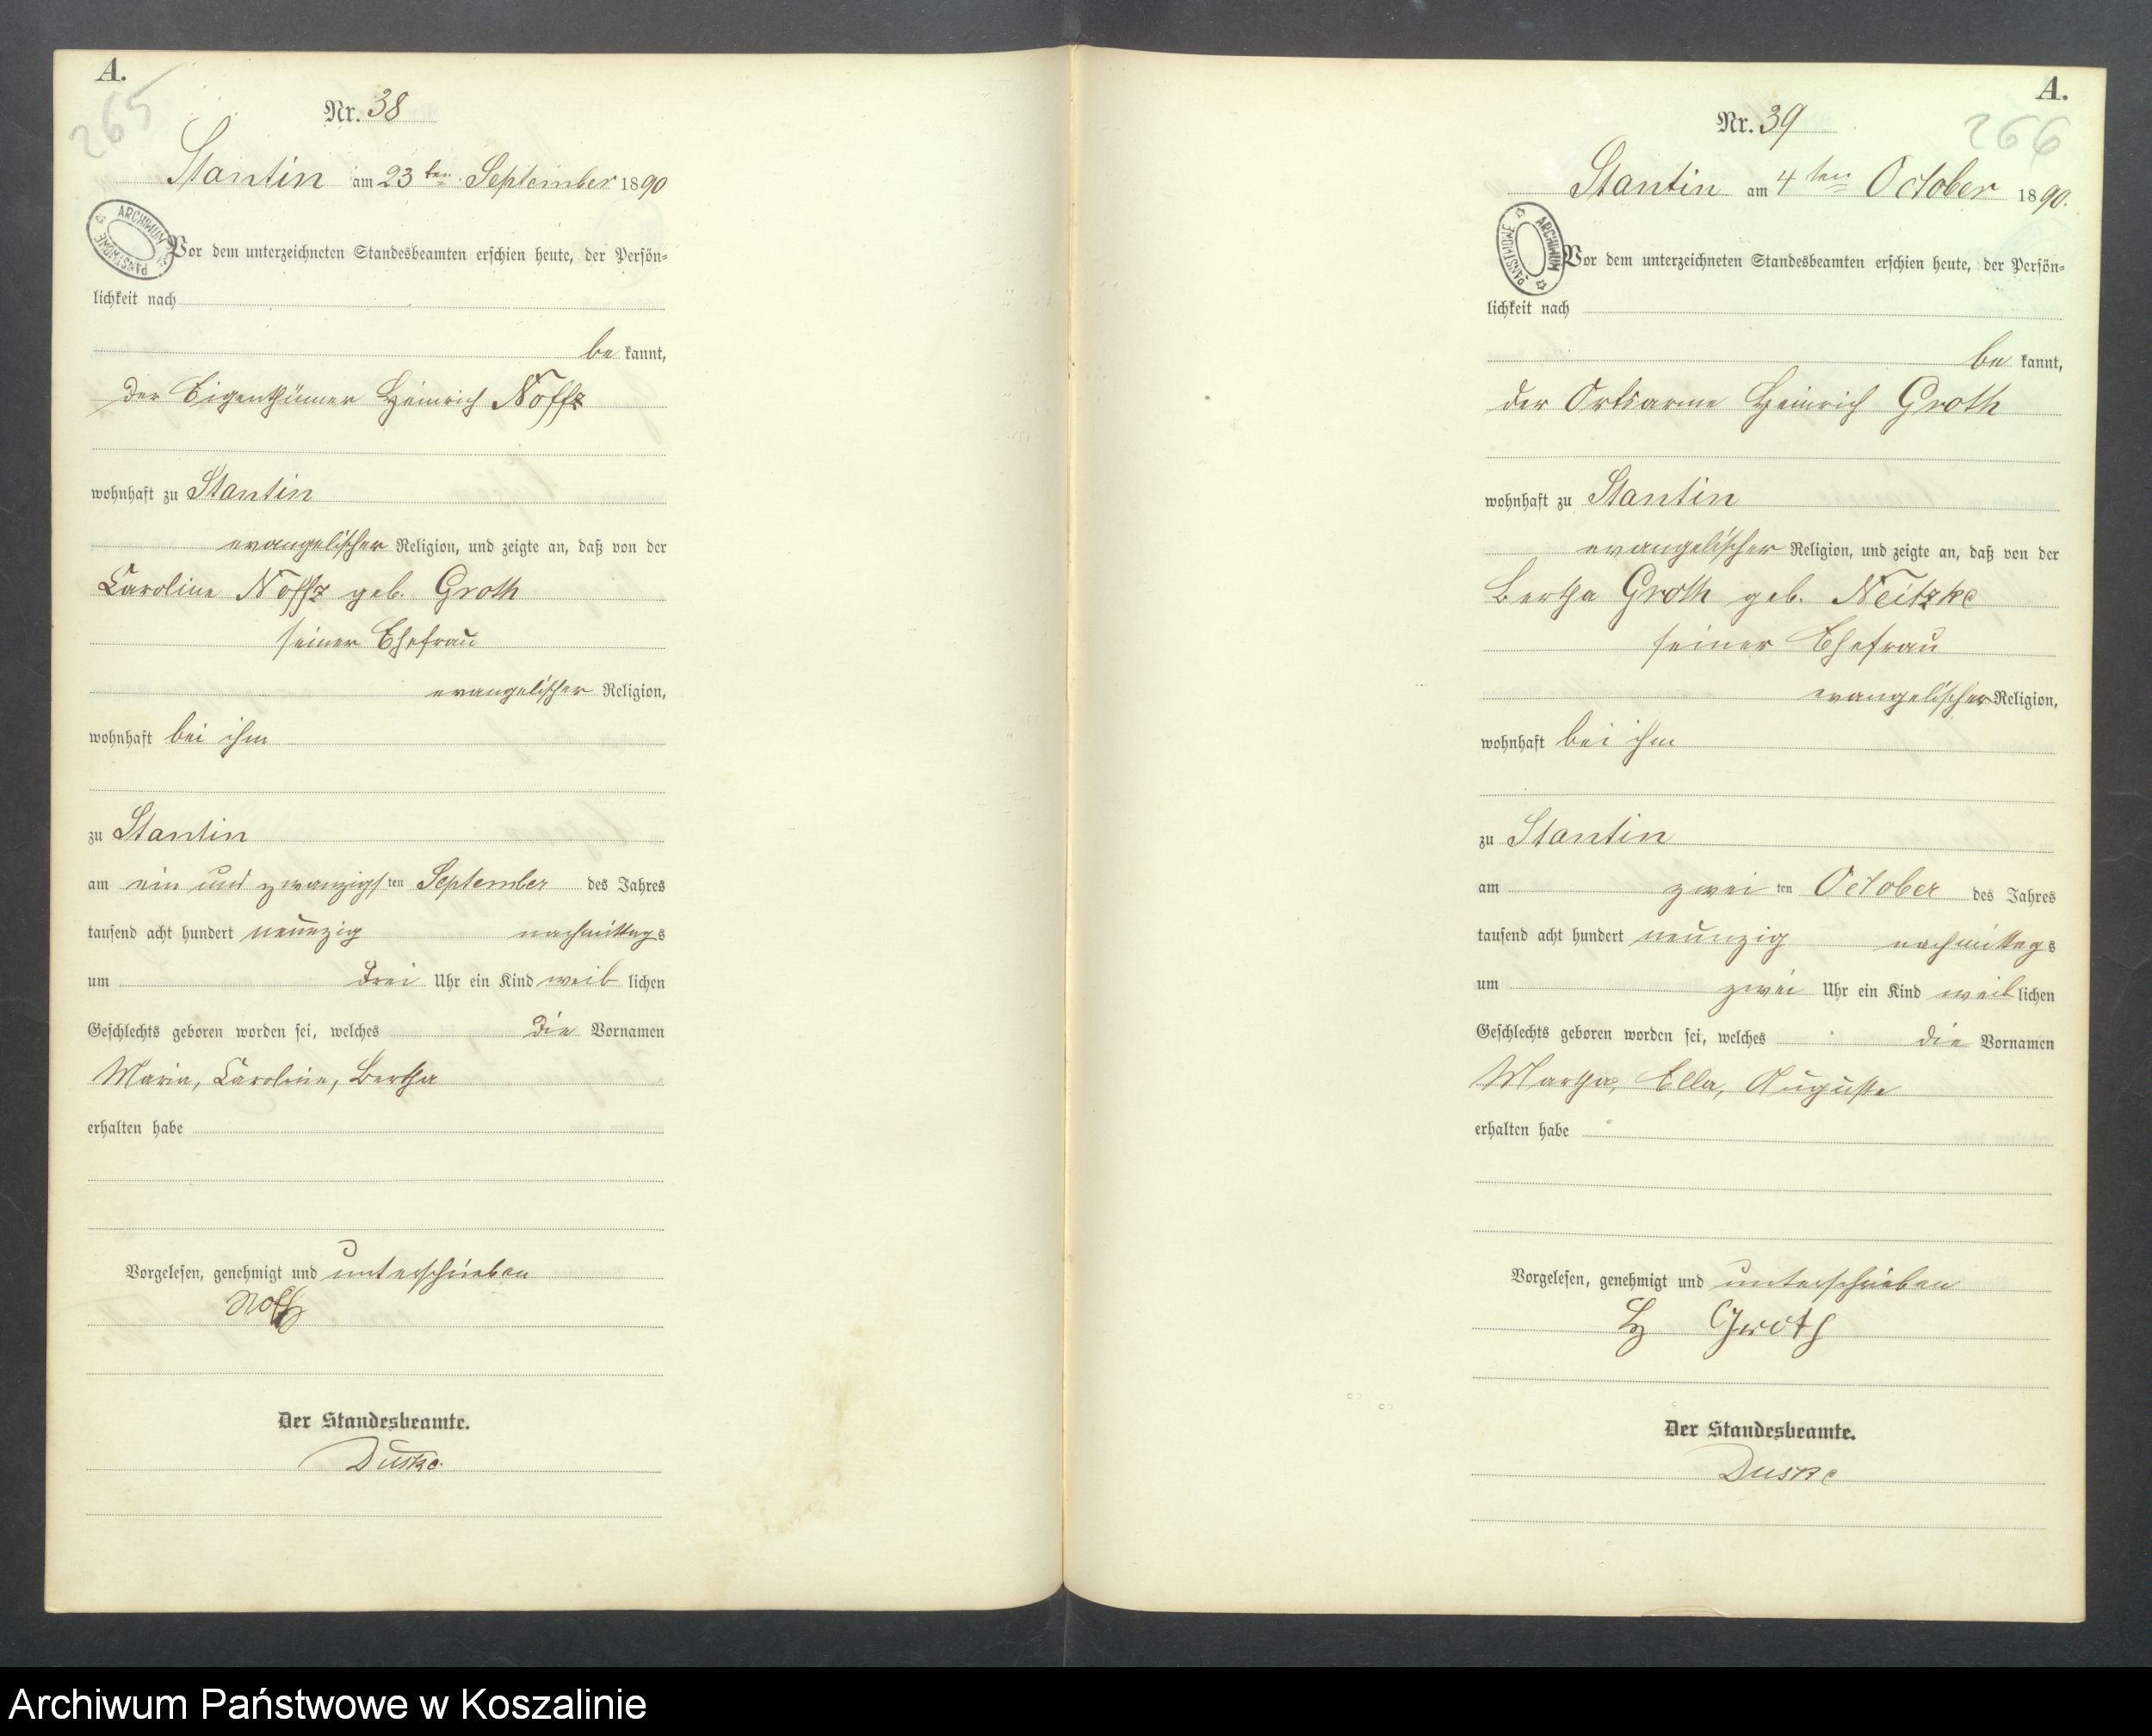 A.
265
Nr. 38
Stantin am 23ten September 1890
ARCHIWUM PAŃSTWOWE
Vor dem unterzeichneten Standesbeamten erschien heute, der Persön-
lichkeit nach
be kannt,
der Eigenthümer Heinrich Noffz
wohnhaft zu Stantin
evangelischer Religion, und zeigte an, daß von der
Caroline Noffz geb. Groth
seiner Ehefrau
evangelischer Religion,
wohnhaft bei ihm
zu Stantin
am ein und zwanzigsten September des Jahres
tausend acht hundert neunzig nachmittags
um drei Uhr ein Kind weib lichen
Geschlechts geboren worden sei, welches die Vornamen
Maria, Caroline, Bertha
erhalten habe
Vorgelesen, genehmigt und unterschrieben
Der Standesbeamte.
Duske.
A.
266
Nr. 39
Stantin am 4ten October 1890.
ARCHIWUM PAŃSTWOWE
Vor dem unterzeichneten Standesbeamten erschien heute, der Persön-
lichkeit nach
be kannt,
der Ortsarme Heinrich Groth
wohnhaft zu Stantin
evangelischer Religion, und zeigte an, daß von der
Bertha Groth geb. Neitzke
seiner Ehefrau
evangelischer Religion,
wohnhaft bei ihm
zu Stantin
am zwei ten October des Jahres
tausend acht hundert neunzig nachmittags
um zwei Uhr ein Kind weib lichen
Geschlechts geboren worden sei, welches die Vornamen
Martha, Ella, Auguste
erhalten habe
Vorgelesen, genehmigt und unterschrieben
H Groth
Der Standesbeamte.
Duske
Archiwum Państwowe w Koszalinie